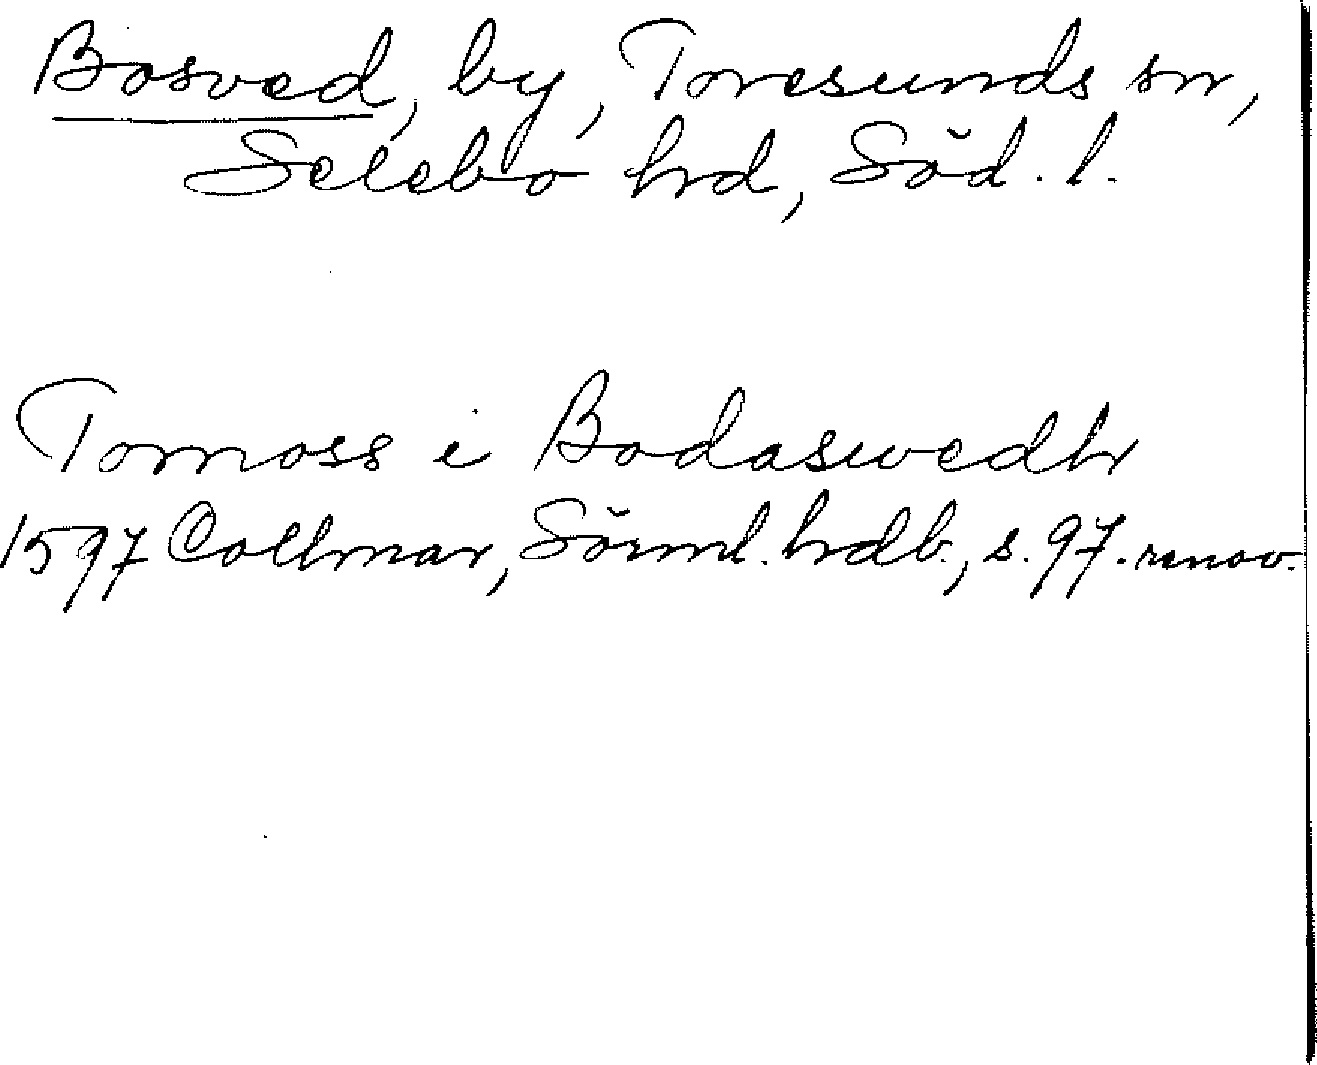 Bosved, by, Toresunds sn,
Selebo hrd, Söd. l.
Tomoss i Bodaswedh
1597 Collmar, Sörml. hrdb., s. 97. renov.